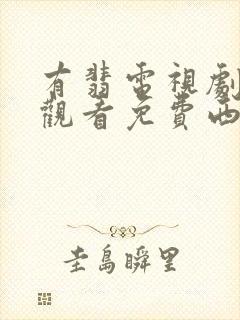 有翡電視劇
觀看免費西
圭島瞬里